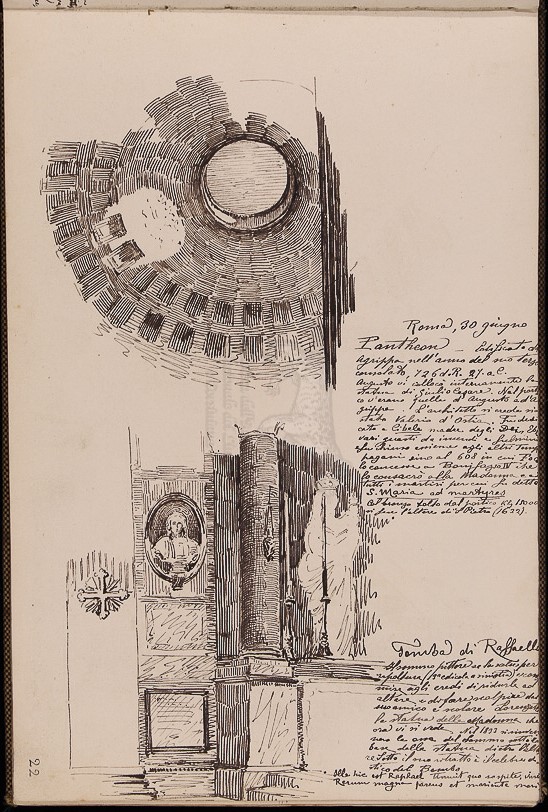 Roma, 30 giugno
Pantheon — Edificato da
Agrippa nell'anno del suo terzo
consolato, 726 d. R. 27. a. C.
Augusto vi collocò internamente la
statua di Giulio Cesare. Nel porti
co v'erano quelle d'Augusto ed A
grippa. L'architetto si crede sia
stato Valerio d'Ostia. Fu dedi
cato a Cibele madre degli Dei.
vari guasti da incendi e fulmini
fu chiuso insieme agli altri templi
pagani sino al 608 in cui Fo
ca concesse a Bonifazio IV che
lo consacrò alla Madonna e a
tutti i martiri per cui fu detto
S. Maria ad martyres
Il bronzo tolto dal portico
fuse l'altare di S. Pietro (1632).
Tomba di Raffaello
Il sommo pittore
agli eredi di ridurla ad
altare e di fare scolpire dal
suo amico e scolare Lorenzetto
la statua della Madonna che
ora vi si vede. Nel 1833 si rinven
nero le ossa del sommo sotto la
base della statua
ritratto è
Ille hic est Raphael timuit quo sospite vinci
Rerum magna parens et moriente mori
22